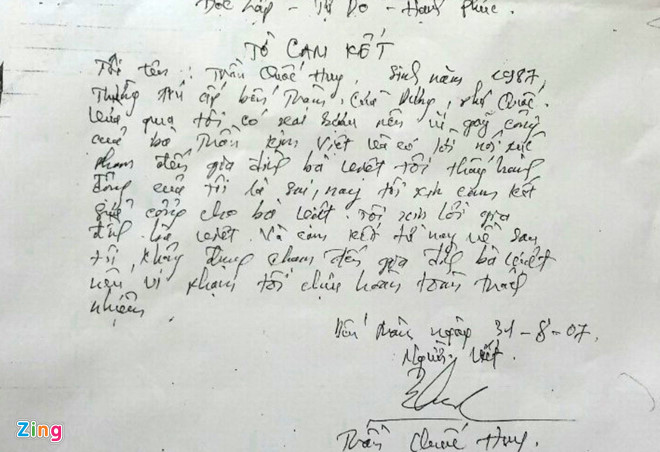 Độc Lập - Tự Do - Hạnh phúc.
TỜ CAM KẾT
Tôi tên : Trần Quốc Huy, Sinh năm 1987,
Thường trú ấp bến Tràm, Cửa Dương, Phú Quốc.
vừa qua tôi có say nên vi gãy cổng
của bà Trần Kim Việt và có lời nói xúc
phạm đến gia đình bà việt tôi thấy hành
động của tôi là sai, nay tôi xin cam kết
cổng cho bà việt. Tôi xin lỗi gia
đình bà việt. Và cam kết từ nay về sau
tôi không đụng chạm đến gia đình bà việt
nếu vi phạm tôi chịu hoàn toàn trách
nhiệm.
Bến Tràm ngày 31-8-07.
Người viết.
Trần Quốc Huy.
Zing